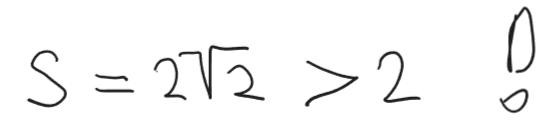 S = 2√2 > 2 !